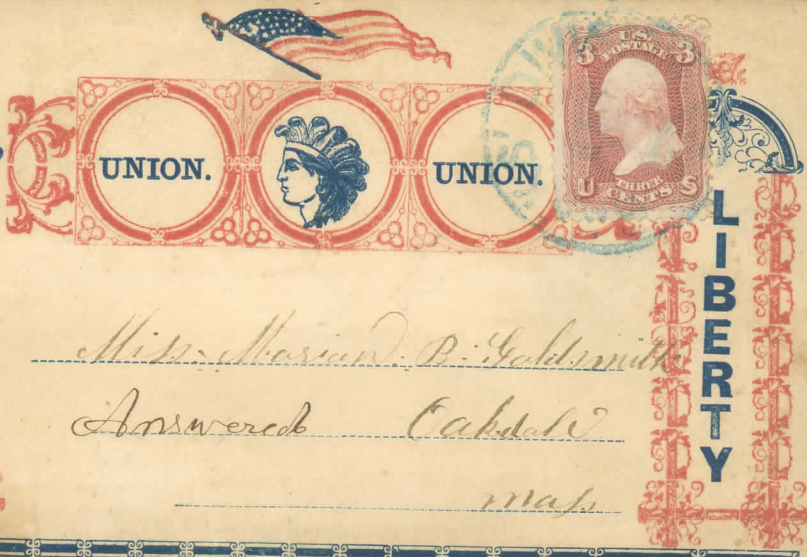 UNION. UNION.
U.S. POSTAGE
3 3
U THREE CENTS S
LIBERTY
Miss. Marian. B. Goldsmith
Answered Oakdale
Mass